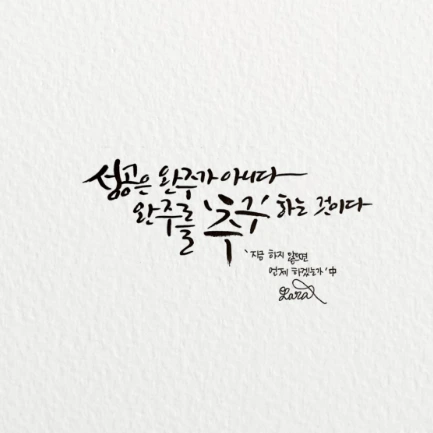 성공은 완주가 아니다
완주를 '추구' 하는 것이다
'지금 하지 않으면
언제 하겠는가' 中
Lara